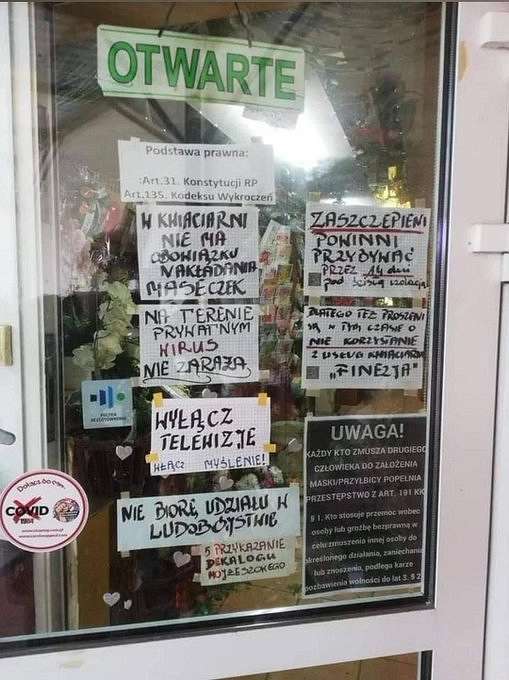 OTWARTE
Podstawa prawna:
:Art.31. Konstytucji RP
Art.135. Kodeksu Wykroczeń
W KWIACIARNI
NIE MA
OBOWIĄZKU
NAKŁADANIA
MASECZEK
NA TERENIE
PRYWATNYM
WIRUS
NIE ZARAŻA
WYŁĄCZ
TELEWIZJĘ
WŁĄCZ MYŚLENIE!
NIE BIORĘ UDZIAŁU W
LUDOBÓJSTWIE
5 PRZYKAZANIE
DEKALOGU
MOJŻESZOWEGO
ZASZCZEPIENI
POWINNI
PRZEBYWAĆ
PRZEZ 14 dni
pod ścisłą izolacją
DLATEGO TEŻ PROSZENI
SĄ W TYM CZASIE O
NIE KORZYSTANIE
Z USŁUG KWIACIARNI
"FINEZJA"
UWAGA!
KAŻDY KTO ZMUSZA DRUGIEGO
CZŁOWIEKA DO ZAŁOŻENIA
MASKI/PRZYŁBICY POPEŁNIA
PRZESTĘPSTWO Z ART. 191 KK
§ 1. Kto stosuje przemoc wobec
osoby lub groźbę bezprawną w
celu zmuszenia innej osoby do
określonego działania, zaniechania
lub znoszenia, podlega karze
pozbawienia wolności do lat 3. § 2
Dołącz do nas
COVID
1984